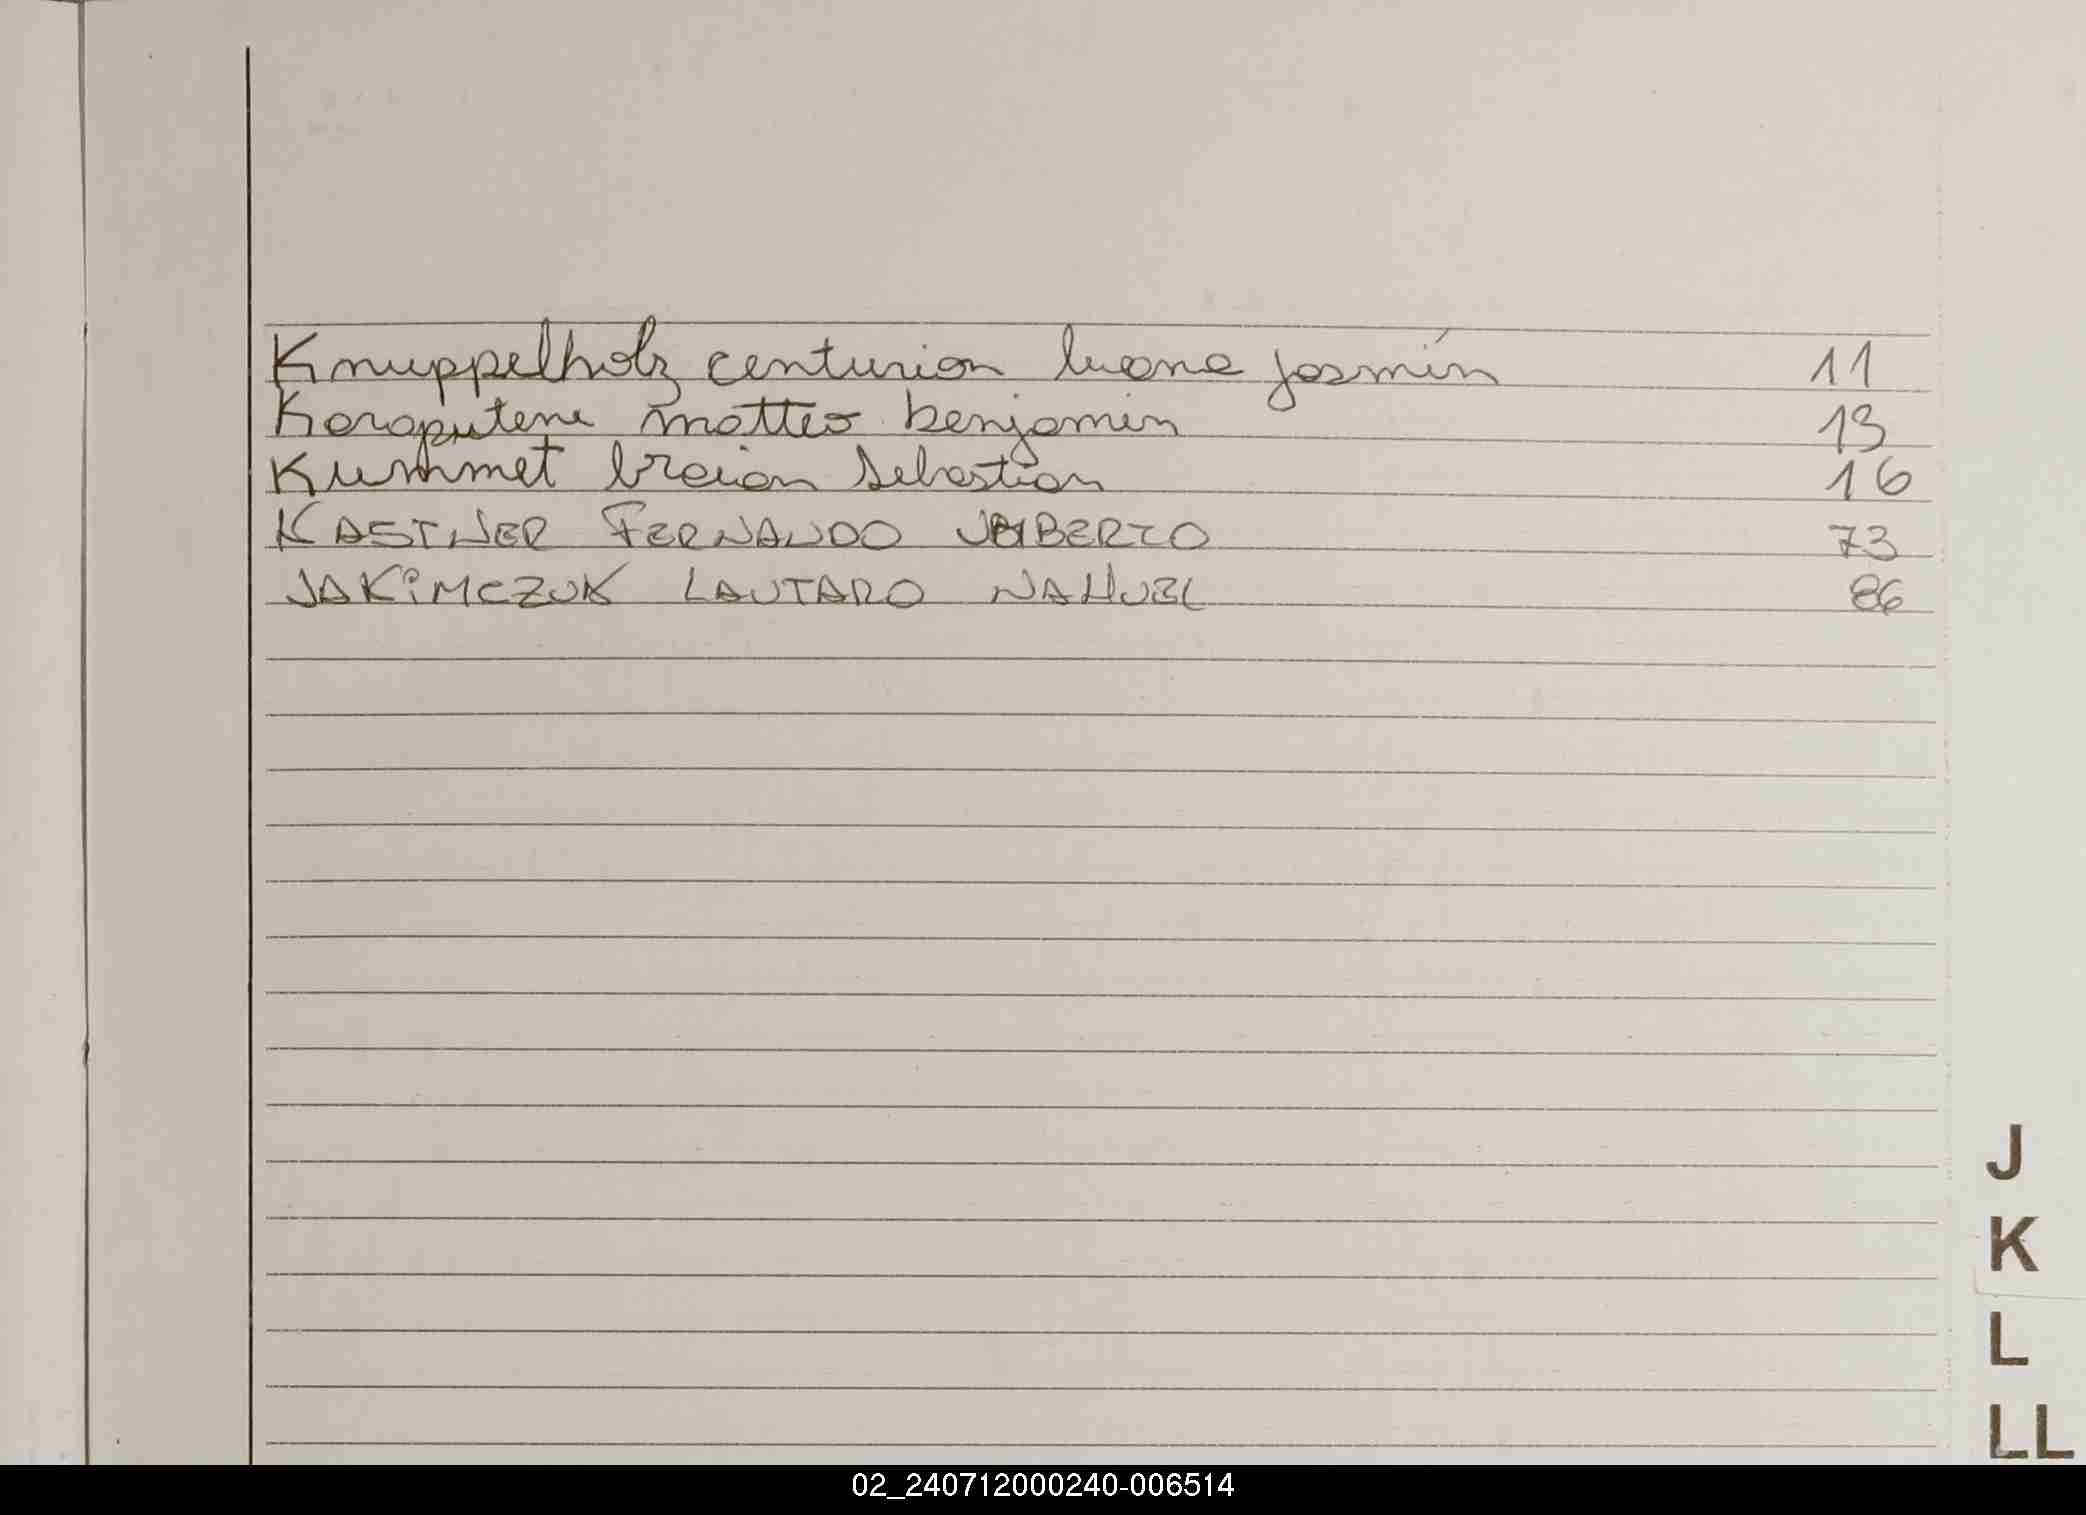 Knuppelholz centurion luana jasmín 11
Karaputene matteo benjamin 13
Kummet braian Sebastian 16
KASTNER FERNANDO 73
JAKIMCZUK LAUTARO NAHUEL 86
J
K
L
LL
02_240712000240-006514